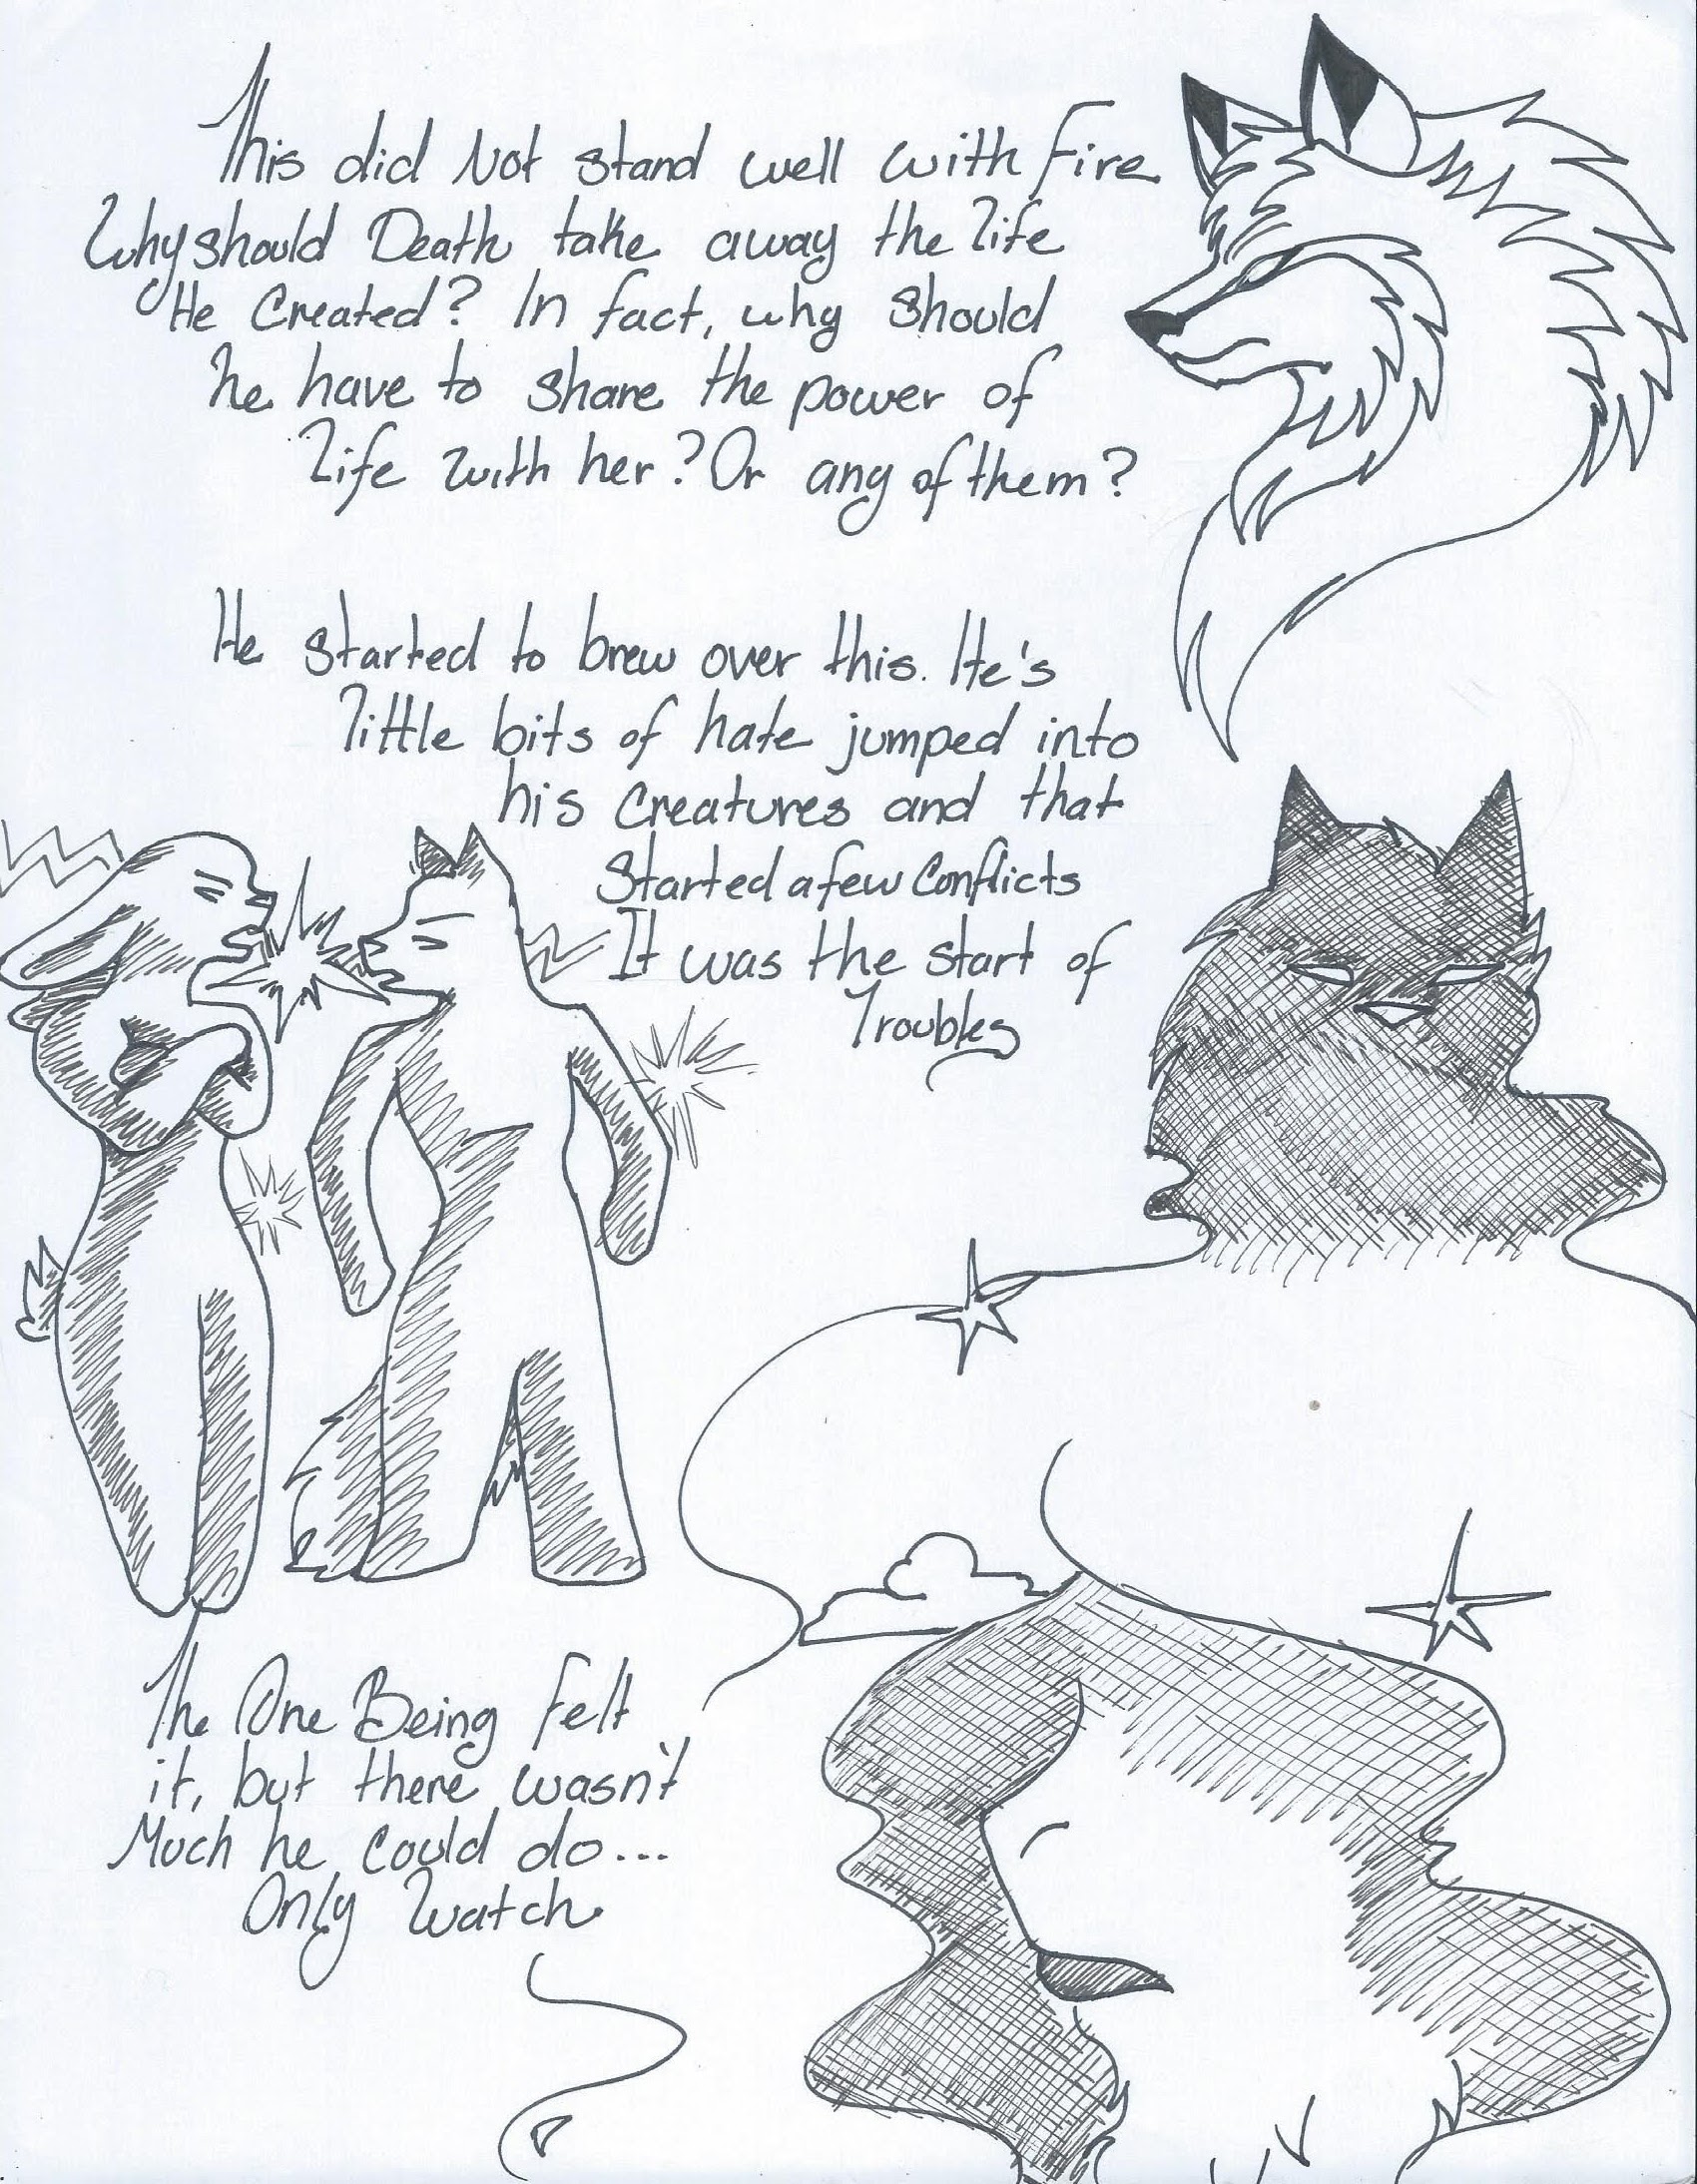 This did Not stand well with fire
Why should Death take away the life
He Created? In fact, why should
he have to share the power of
life with her? Or any of them?
He started to brew over this. He's
little bits of hate jumped into
his creatures and that
Started a few Conflicts
It was the start of
Troubles
The One Being felt
it, but there wasn't
Much he could do...
Only Watch.